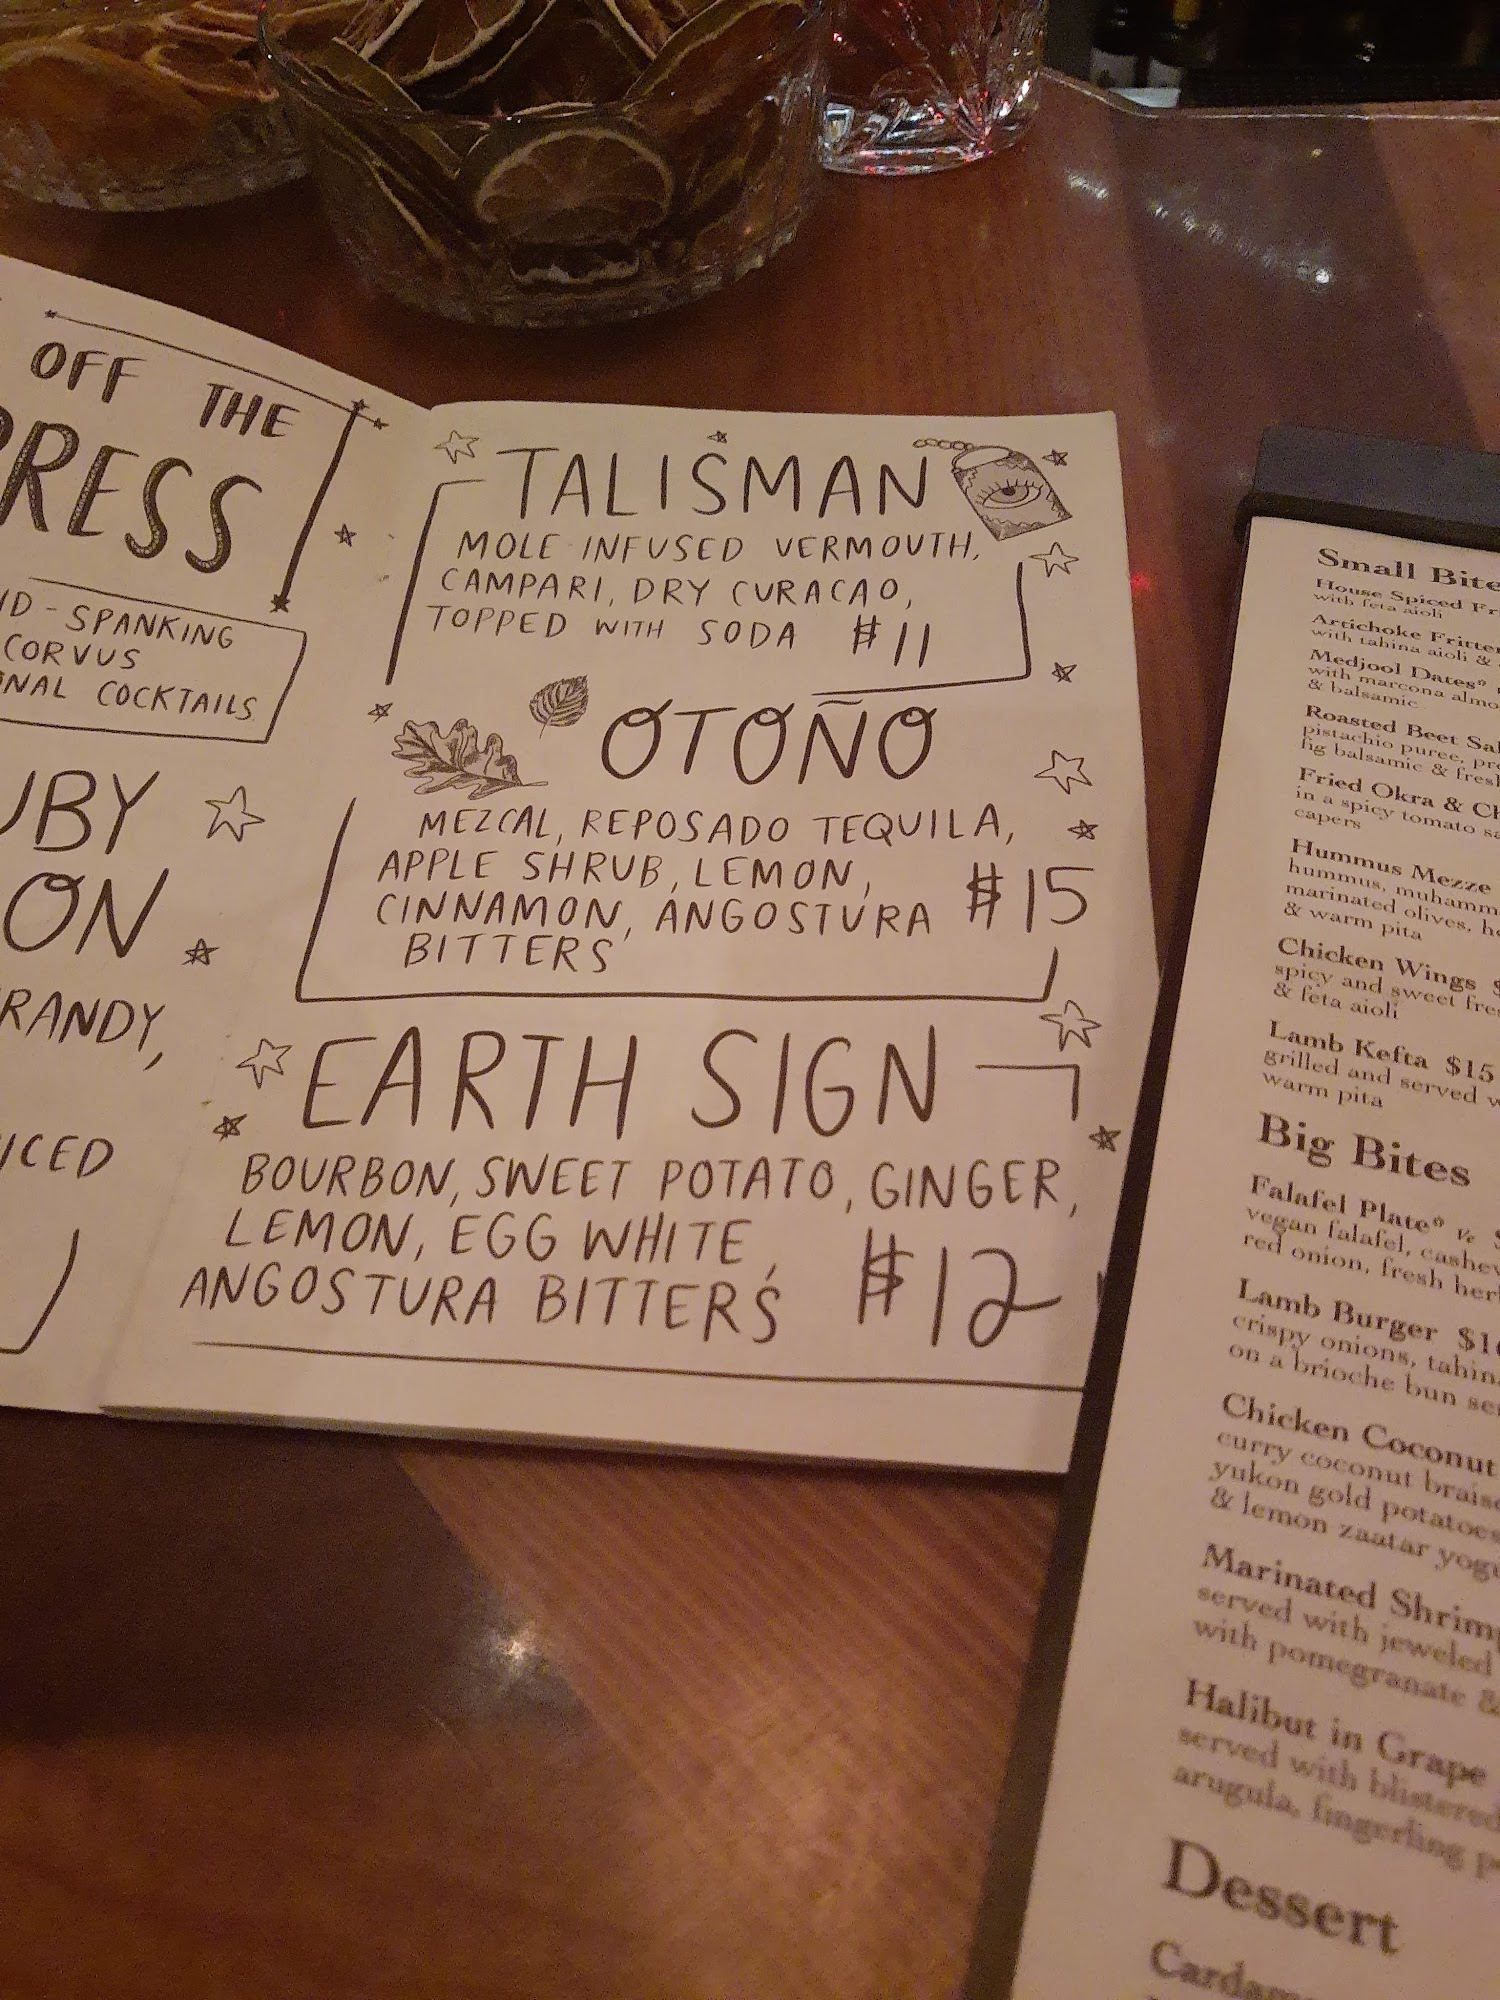 OFF THE
PRESS
SPANKING
CORVUS
COCKTAILS
TALISMAN
MOLE-INFUSED VERMOUTH,
CAMPARI, DRY CURACAO,
TOPPED WITH SODA $11
OTOÑO
MEZCAL, REPOSADO TEQUILA,
APPLE SHRUB, LEMON,
CINNAMON, ANGOSTURA $15
BITTERS
EARTH SIGN
BOURBON, SWEET POTATO, GINGER,
LEMON, EGG WHITE,
ANGOSTURA BITTERS $12
Small
House Spiced
with feta aioli
Artichoke
with tahina aioli &
Medjool Dates*
with marcona
& balsamic
Roasted Beet
pistachio puree,
fig balsamic &
Fried Okra &
in a spicy tomato
capers
Hummus Mezze
hummus,
marinated olives,
& warm pita
Chicken Wings
spicy and sweet
& feta aioli
Lamb Kefta $15
grilled and served
warm pita
Big Bites
Falafel Plate* Ve
vegan falafel,
red onion, fresh
Lamb Burger
crispy onions,
on a brioche bun
Chicken Coconut
curry coconut
yukon gold potatoes
& lemon zaatar
Marinated
served with jeweled
with pomegranate &
Halibut in Grape
served with blistered
arugula, fingerling
Dessert